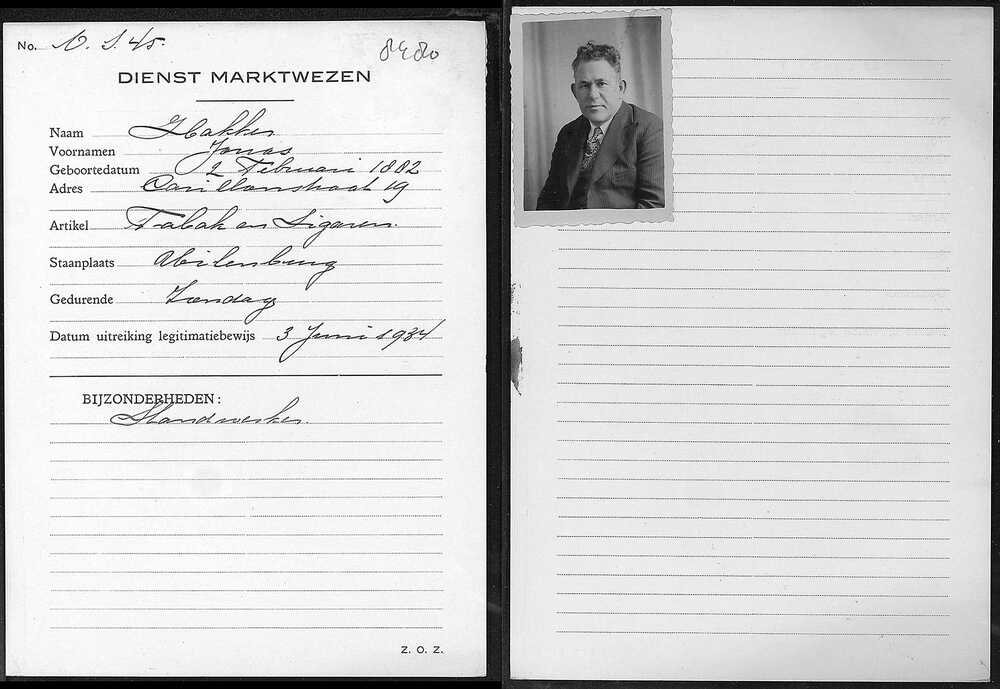 No. U. S. 45.
8480
DIENST MARKTWEZEN
Naam Hakker
Voornamen Jonas
Geboortedatum 2 Februari 1882
Adres Carillonstraat 19
Artikel Tabak en Sigaren.
Staanplaats Uilenburg
Gedurende Zondag
Datum uitreiking legitimatiebewijs 3 Juni 1934
BIJZONDERHEDEN:
Standwerker.
Z. O. Z.